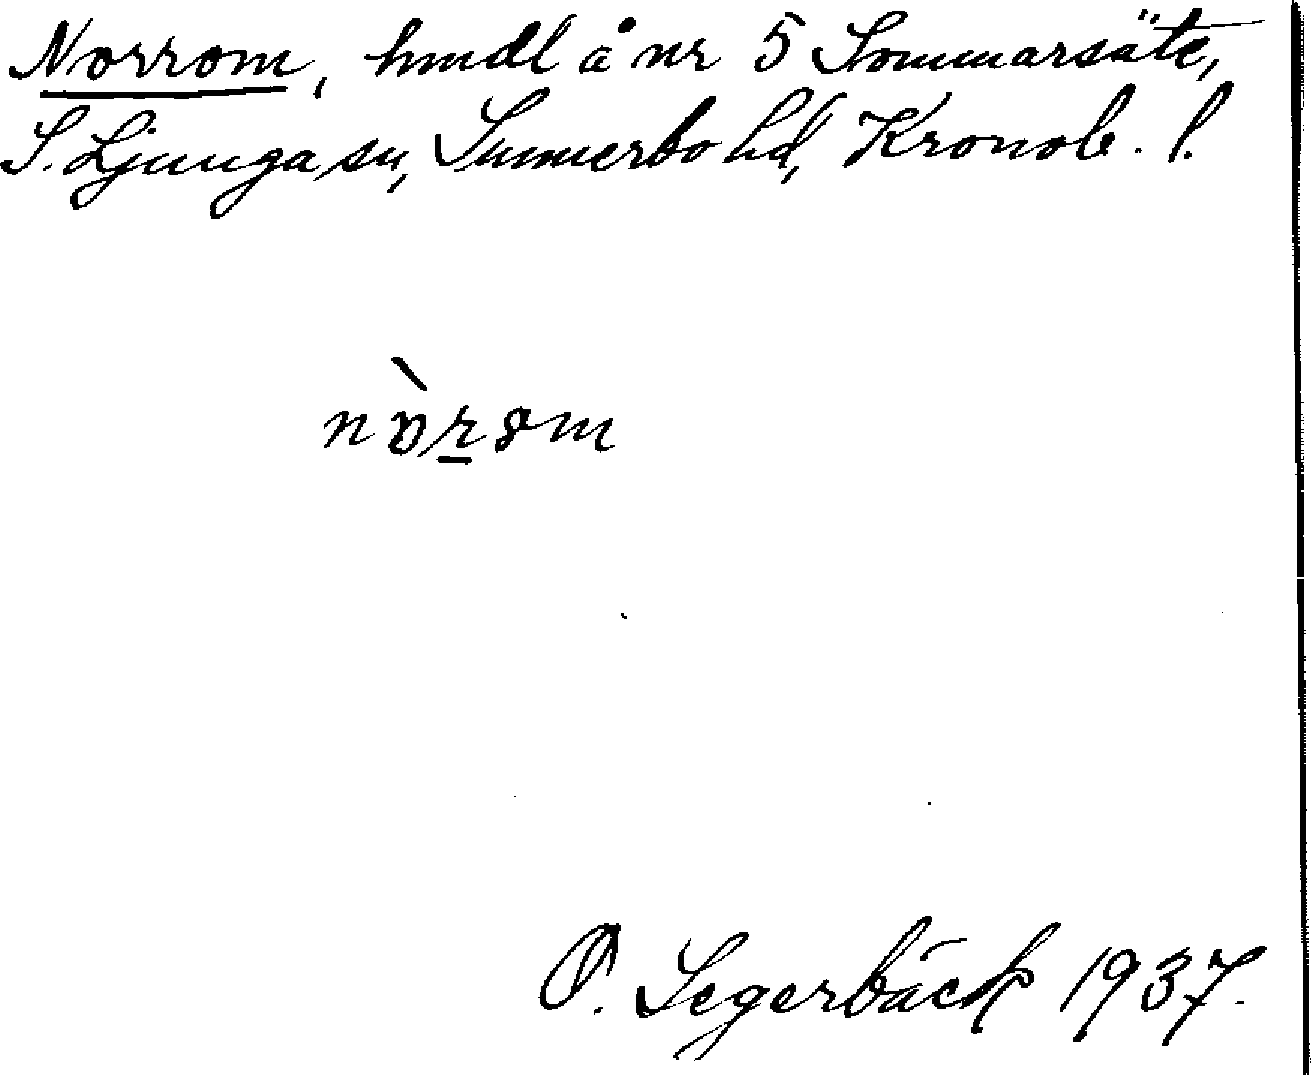 Norrom, hmdl å nr 5 Sommarsäte,
S. Ljunga sn, Sunnerbo hd, Kronob. l.
nòrom
O. Segerbäck 1937.